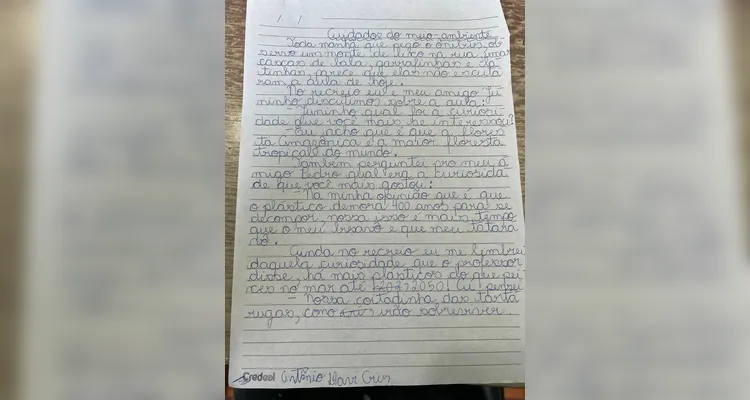 / /
Cuidados do meio-ambiente
Toda manhã que pego o ônibus, ob
servo um monte de lixo na rua, umas
cascas de bala, garrafinhas e la
tinhas, parece que elas não escuta
ram a aula de hoje.
No recreio eu e meu amigo Ju
ninho discutimos sobre a aula:
- Juninho qual foi a curiosi
dade que você mais se interessou?
- Eu acho que é que a flores
ta Amazônica é a maior floresta
tropical do mundo.
Também perguntei pro meu a
migo Pedro qual era a curiosida
de que você mais gostou:
- Na minha opinião que é que
o plástico demora 400 anos para se
decompor, nossa isso é mais tempo
que o meu bisavô e que meu tatara
vô.
Ainda no recreio eu me lembrei
daquela curiosidade que o professor
disse, há mais plásticos do que pei
xes no mar até 2050! Eu pensei
- Nossa coitadinha das tarta
rugas, como irão sobreviver.
Credeal Antônio Davi Cruz